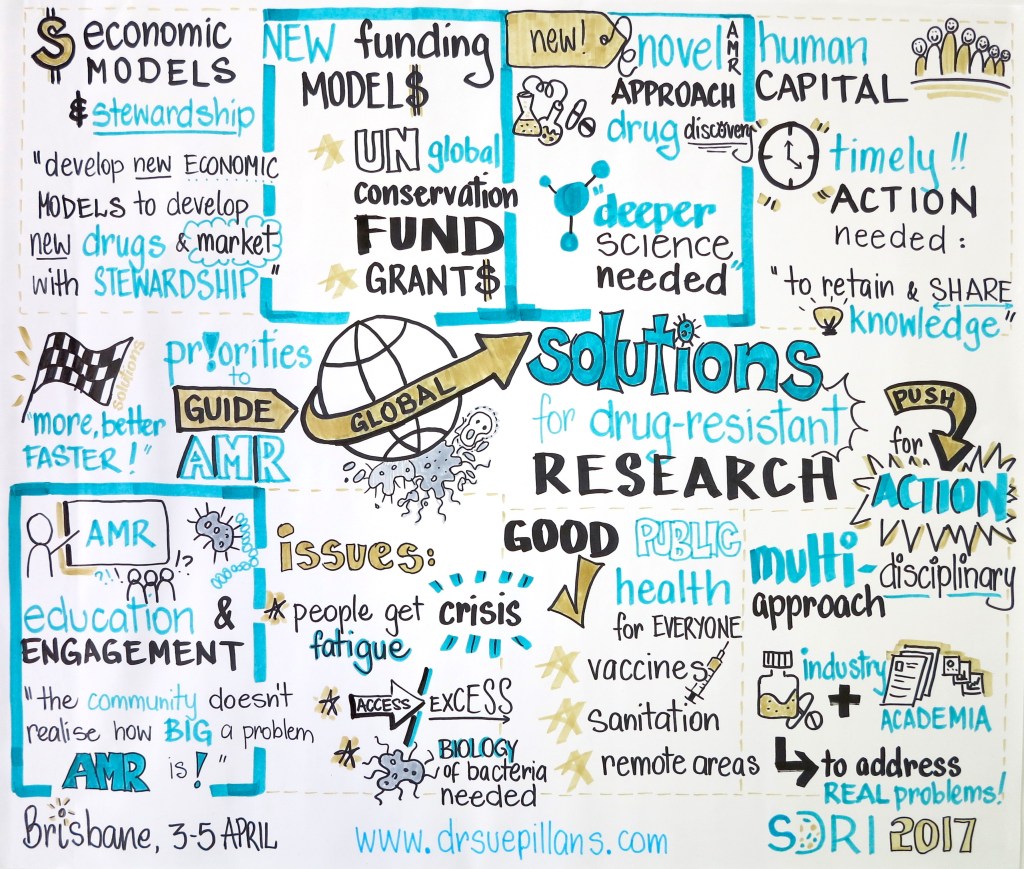 $ economic
MODELS
& stewardship
"develop new ECONOMIC
MODELS to develop
new drugs & market
with STEWARDSHIP"
NEW funding
MODEL$
UN global
conservation
FUND
GRANT$
new!
novel AMR
APPROACH
drug discovery
"deeper
SCIENCE
needed"
human
CAPITAL
timely!!
"ACTION
needed:
"to retain & SHARE
knowledge"
solutions
"more, better
FASTER!"
pr!orities
to
GUIDE
AMR
GLOBAL
solutions
for drug-resistant
RESEARCH
PUSH
for
ACTION
AMR
?!!
!?
education &
ENGAGEMENT
"the community doesn't
realise how BIG a problem
AMR is!"
issues:
people get crisis
fatigue
ACCESS EXCESS
BIOLOGY
of bacteria
needed
GOOD PUBLIC
health
for EVERYONE
vaccines
sanitation
remote areas
multi-disciplinary
approach
industry
+
ACADEMIA
to address
REAL problems!
Brisbane, 3-5 APRIL
www.drsuepillans.com
SDRI 2017